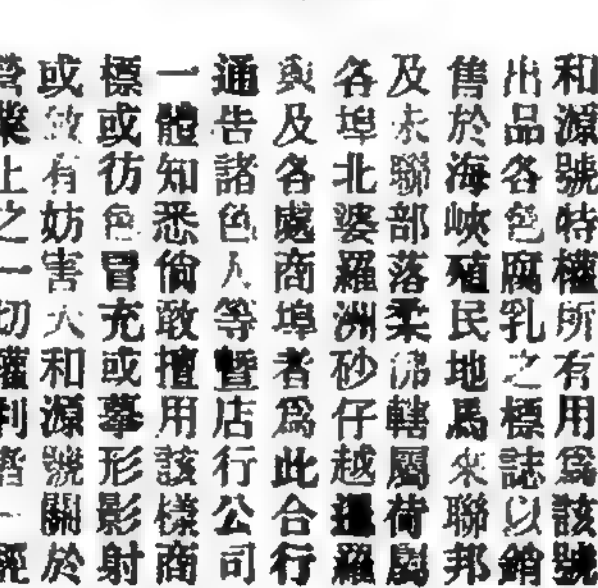 和源號特權所有用爲該號
出品各色腐乳之標誌以銷
售於海峽殖民地馬來聯邦
及未聯部落柔佛轄屬荷屬
各埠北婆羅洲砂仔越暹羅
與及各處商埠者爲此合行
通告諸色人等暨店行公司
一體知悉倘敢擅用該樣商
標或彷色冒充或摹形影射
或致有妨害大和源號關於
營業上之一切權利者一經